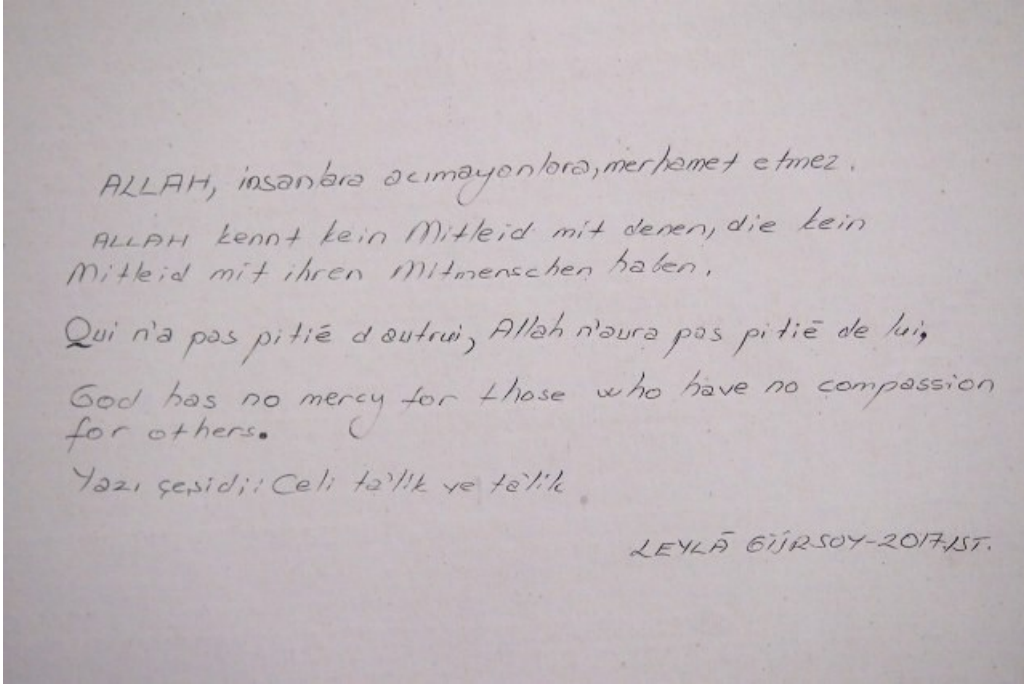 ALLAH, insanlara acımayanlara, merhamet etmez.
ALLAH kennt kein Mitleid mit denen, die kein
Mitleid mit ihren Mitmenschen haben.
Qui n'a pas pitié d'autrui, Allah n'aura pas pitié de lui.
God has no mercy for those who have no compassion
for others.
Yazı çeşidi: Celi ta'lik ve ta'lik
LEYLÂ GÜRSOY-2017.IST.